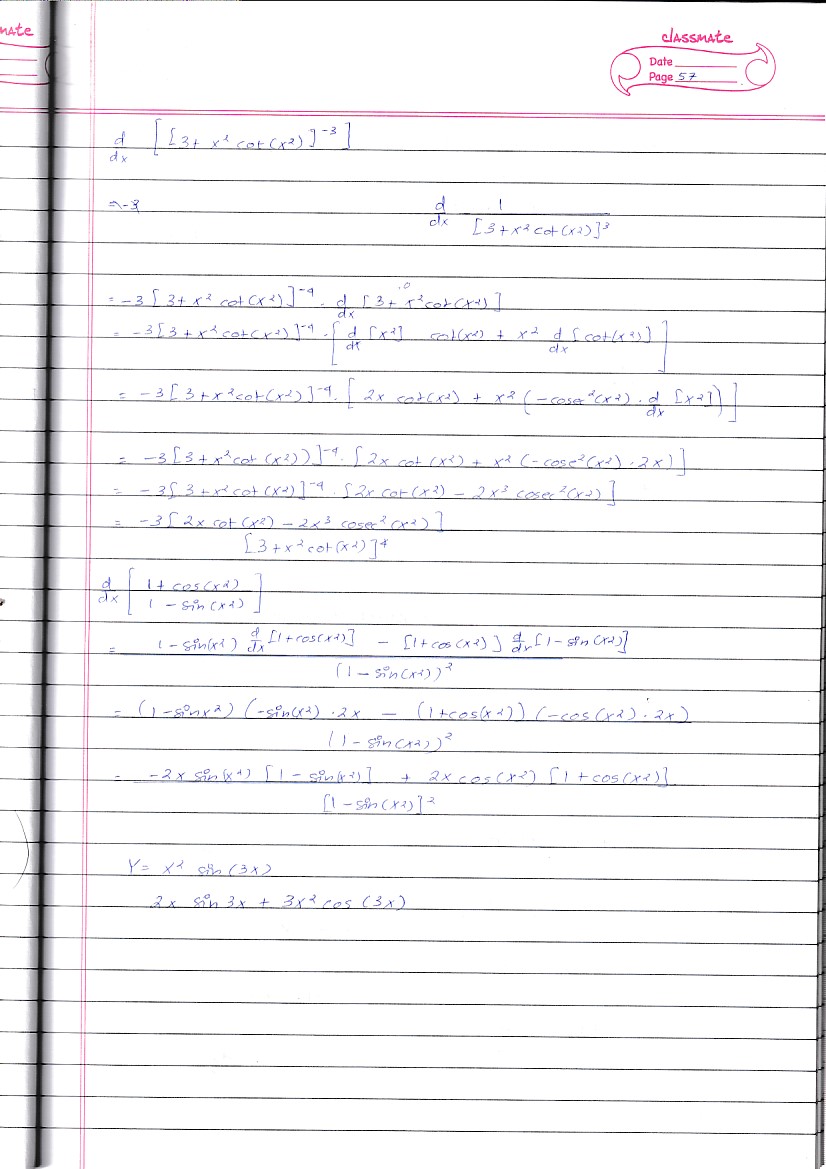 mate
classmate
Date
Page 57
d/dx [[3+ x² cot(x²)]⁻³]
= -3
d/dx 1/[3+x²cot(x²)]³
= -3[3+ x² cot(x²)]⁻⁴ . d/dx [3+ x²cot(x²)]
= -3[3+x²cot(x²)]⁻⁴ . [d/dx [x²] cot(x²) + x² d/dx [cot(x²)]]
= -3[3+x²cot(x²)]⁻⁴ . [2x cot(x²) + x² (-cosec²(x²) . d/dx [x²])]
= -3[3+x²cot(x²))]⁻⁴ . [2x cot(x²) + x² (-cosec²(x²) . 2x)]
= -3[3+x²cot(x²)]⁻⁴ . [2x cot(x²) - 2x³ cosec²(x²)]
= -3[2x cot(x²) - 2x³ cosec²(x²)]
[3+x²cot(x²)]⁴
d/dx [1+cos(x²) / 1-sin(x²)]
= 1-sin(x²) d/dx [1+cos(x²)] - [1+cos(x²)] d/dx [1-sin(x²)]
(1-sin(x²))²
= (1-sinx²) (-sin(x²) . 2x - (1+cos(x²)) (-cos(x²) . 2x)
(1-sin(x²))²
= -2x sin(x²) [1-sin(x²)] + 2x cos(x²) [1+cos(x²)]
[1-sin(x²)]²
Y= x² sin(3x)
2x sin 3x + 3x² cos (3x)